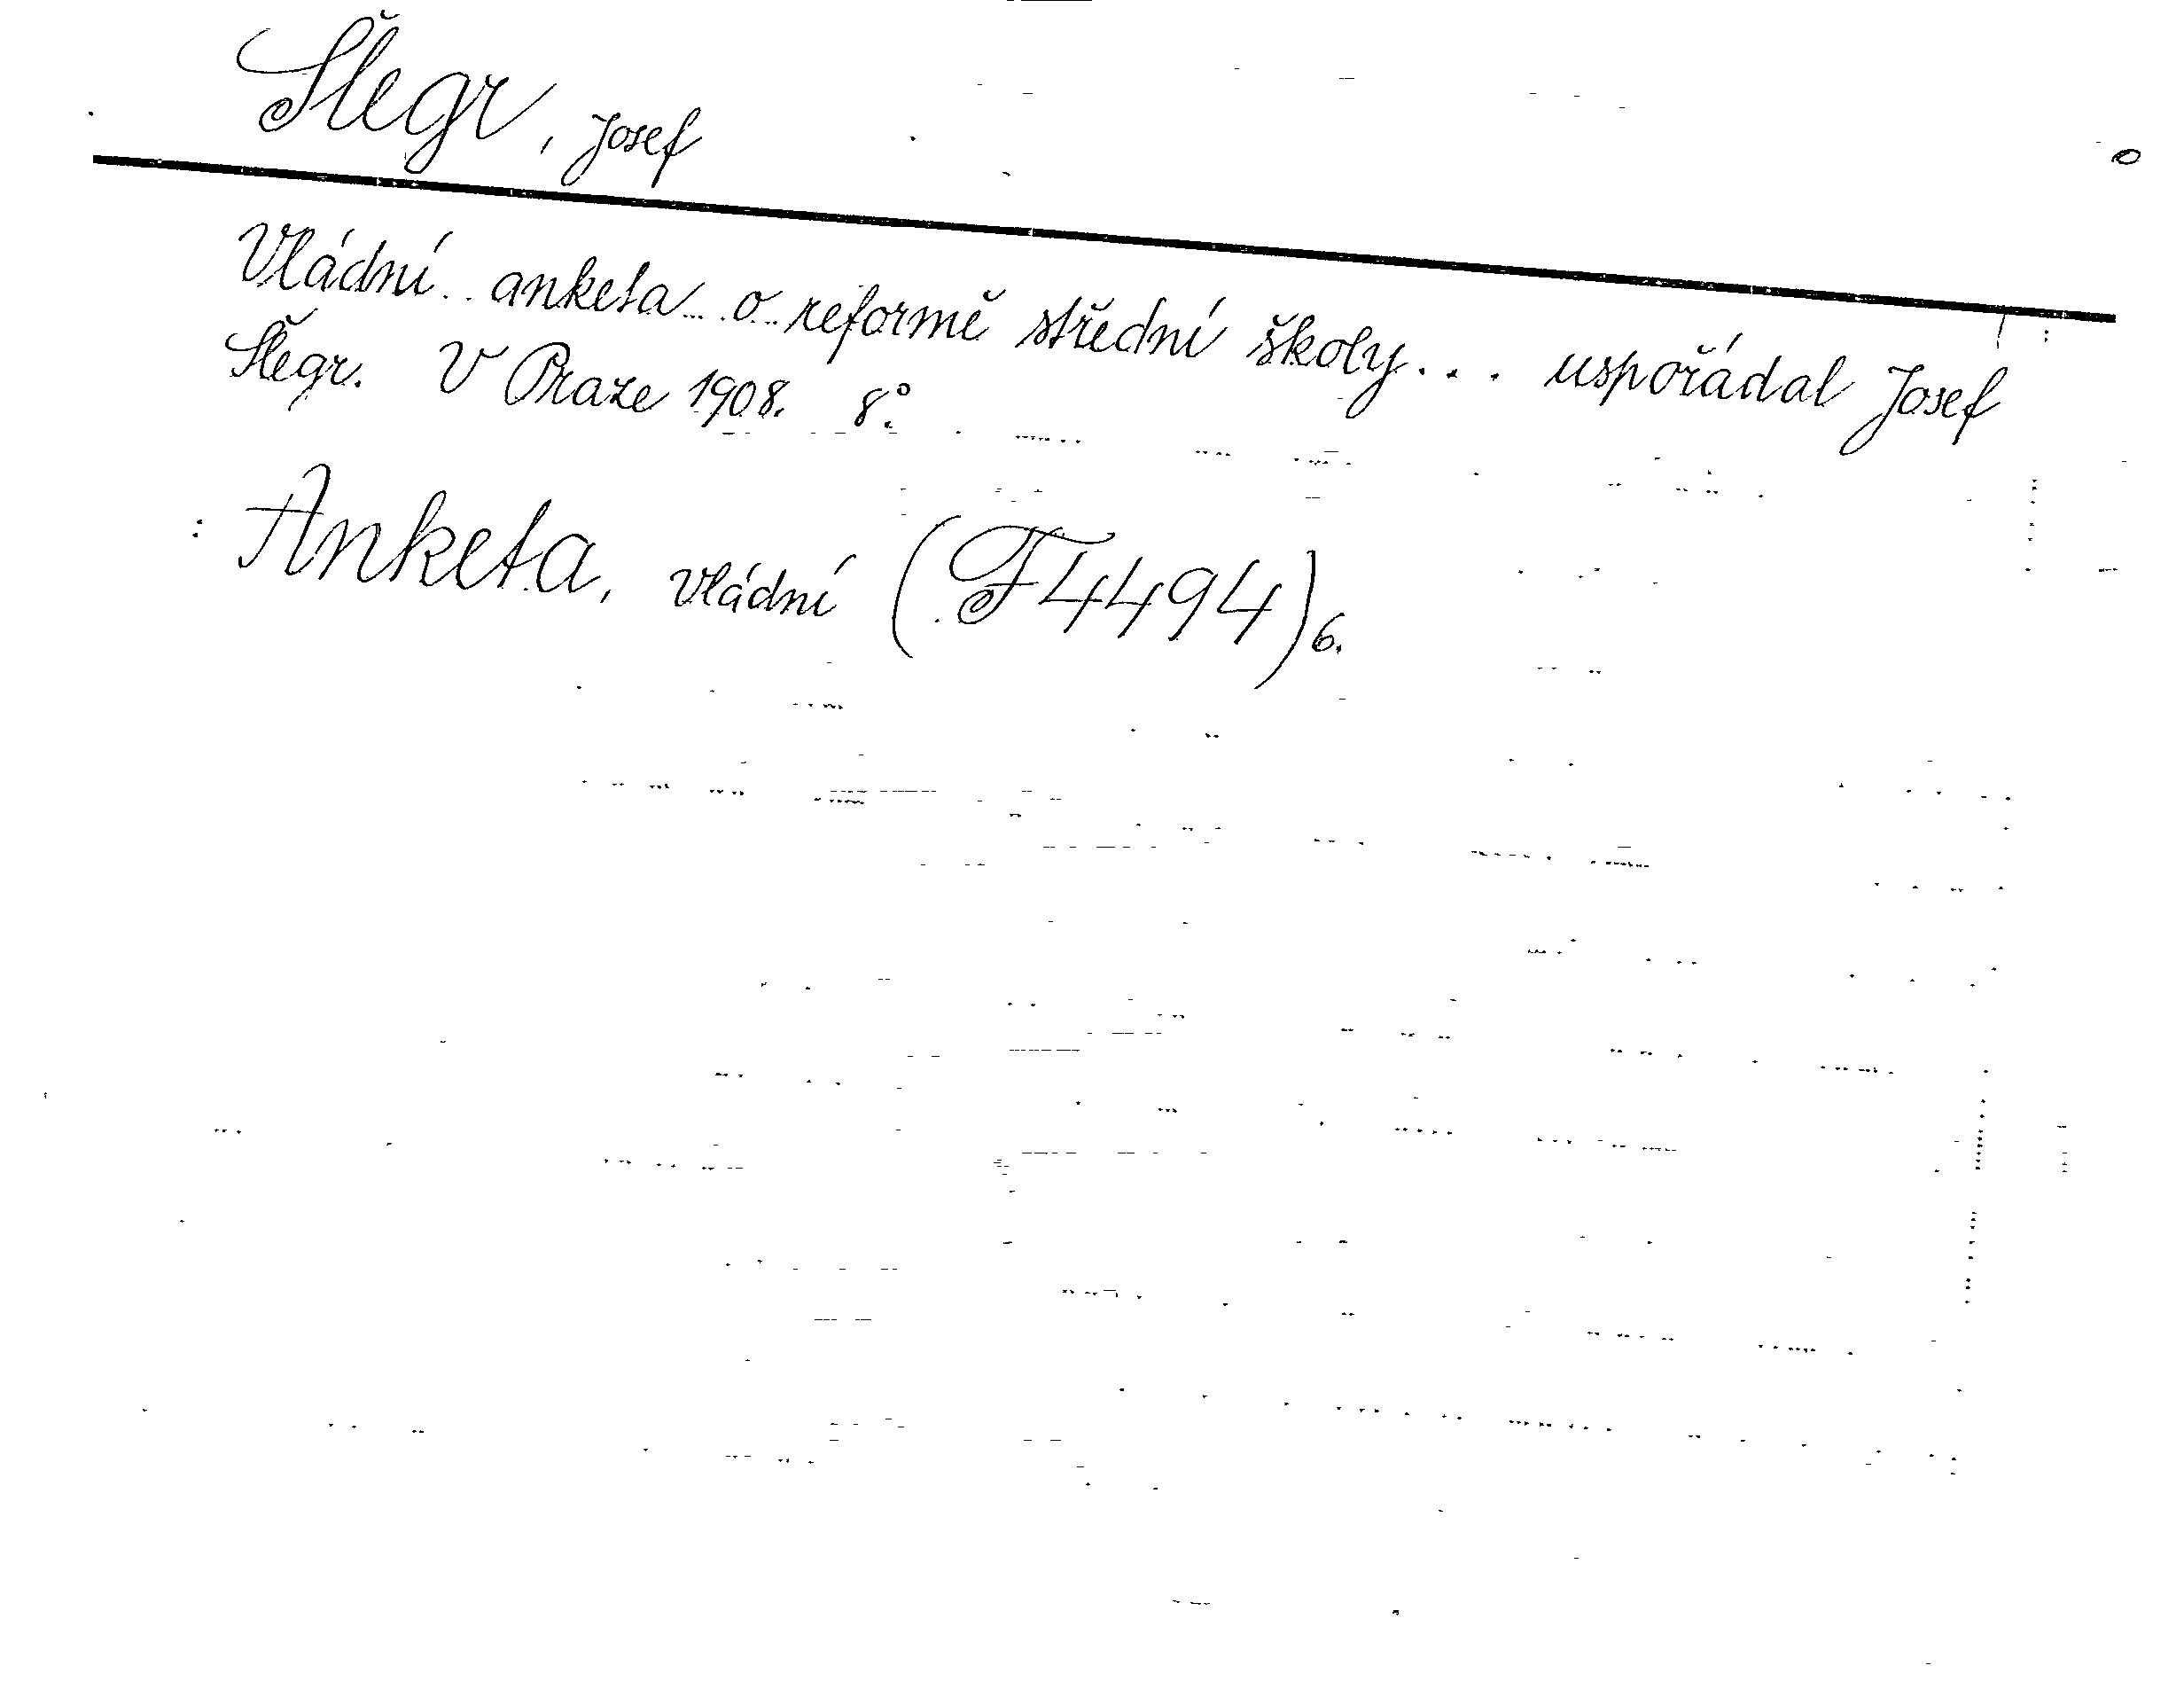 Šlegr, Josef
Vládní anketa o reformě střední školy... uspořádal Josef
Šlegr. V Praze 1908. 8°.
: Anketa, vládní (F4494)6.